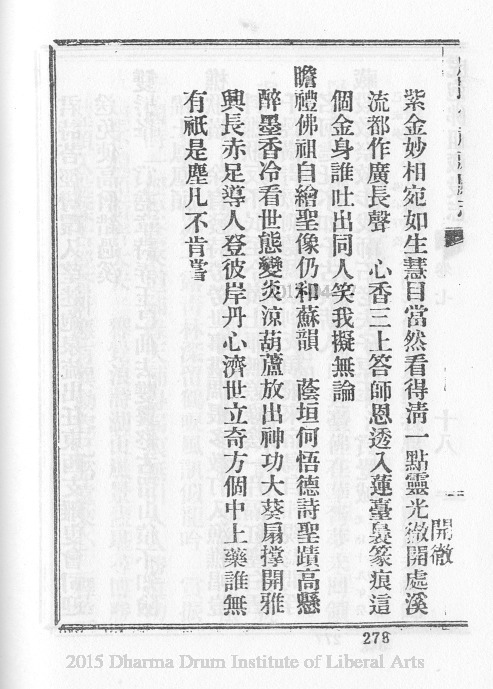 紫金妙相宛如生慧目當然看得清一點靈光微開處溪
流都作廣長聲　心香三上答師恩透入蓮臺裊篆痕這
個金身誰吐出同人笑我擬無論
瞻禮佛祖自繪聖像仍和蘇韻　蔭垣何悟德詩聖蹟高懸
醉墨香冷看世態變炎涼葫蘆放出神功大葵扇撑開雅
興長赤足導人登彼岸丹心濟世立奇方個中上藥誰無
有祇是塵凡不肯嘗
開徹
278
2015 Dharma Drum Institute of Liberal Arts